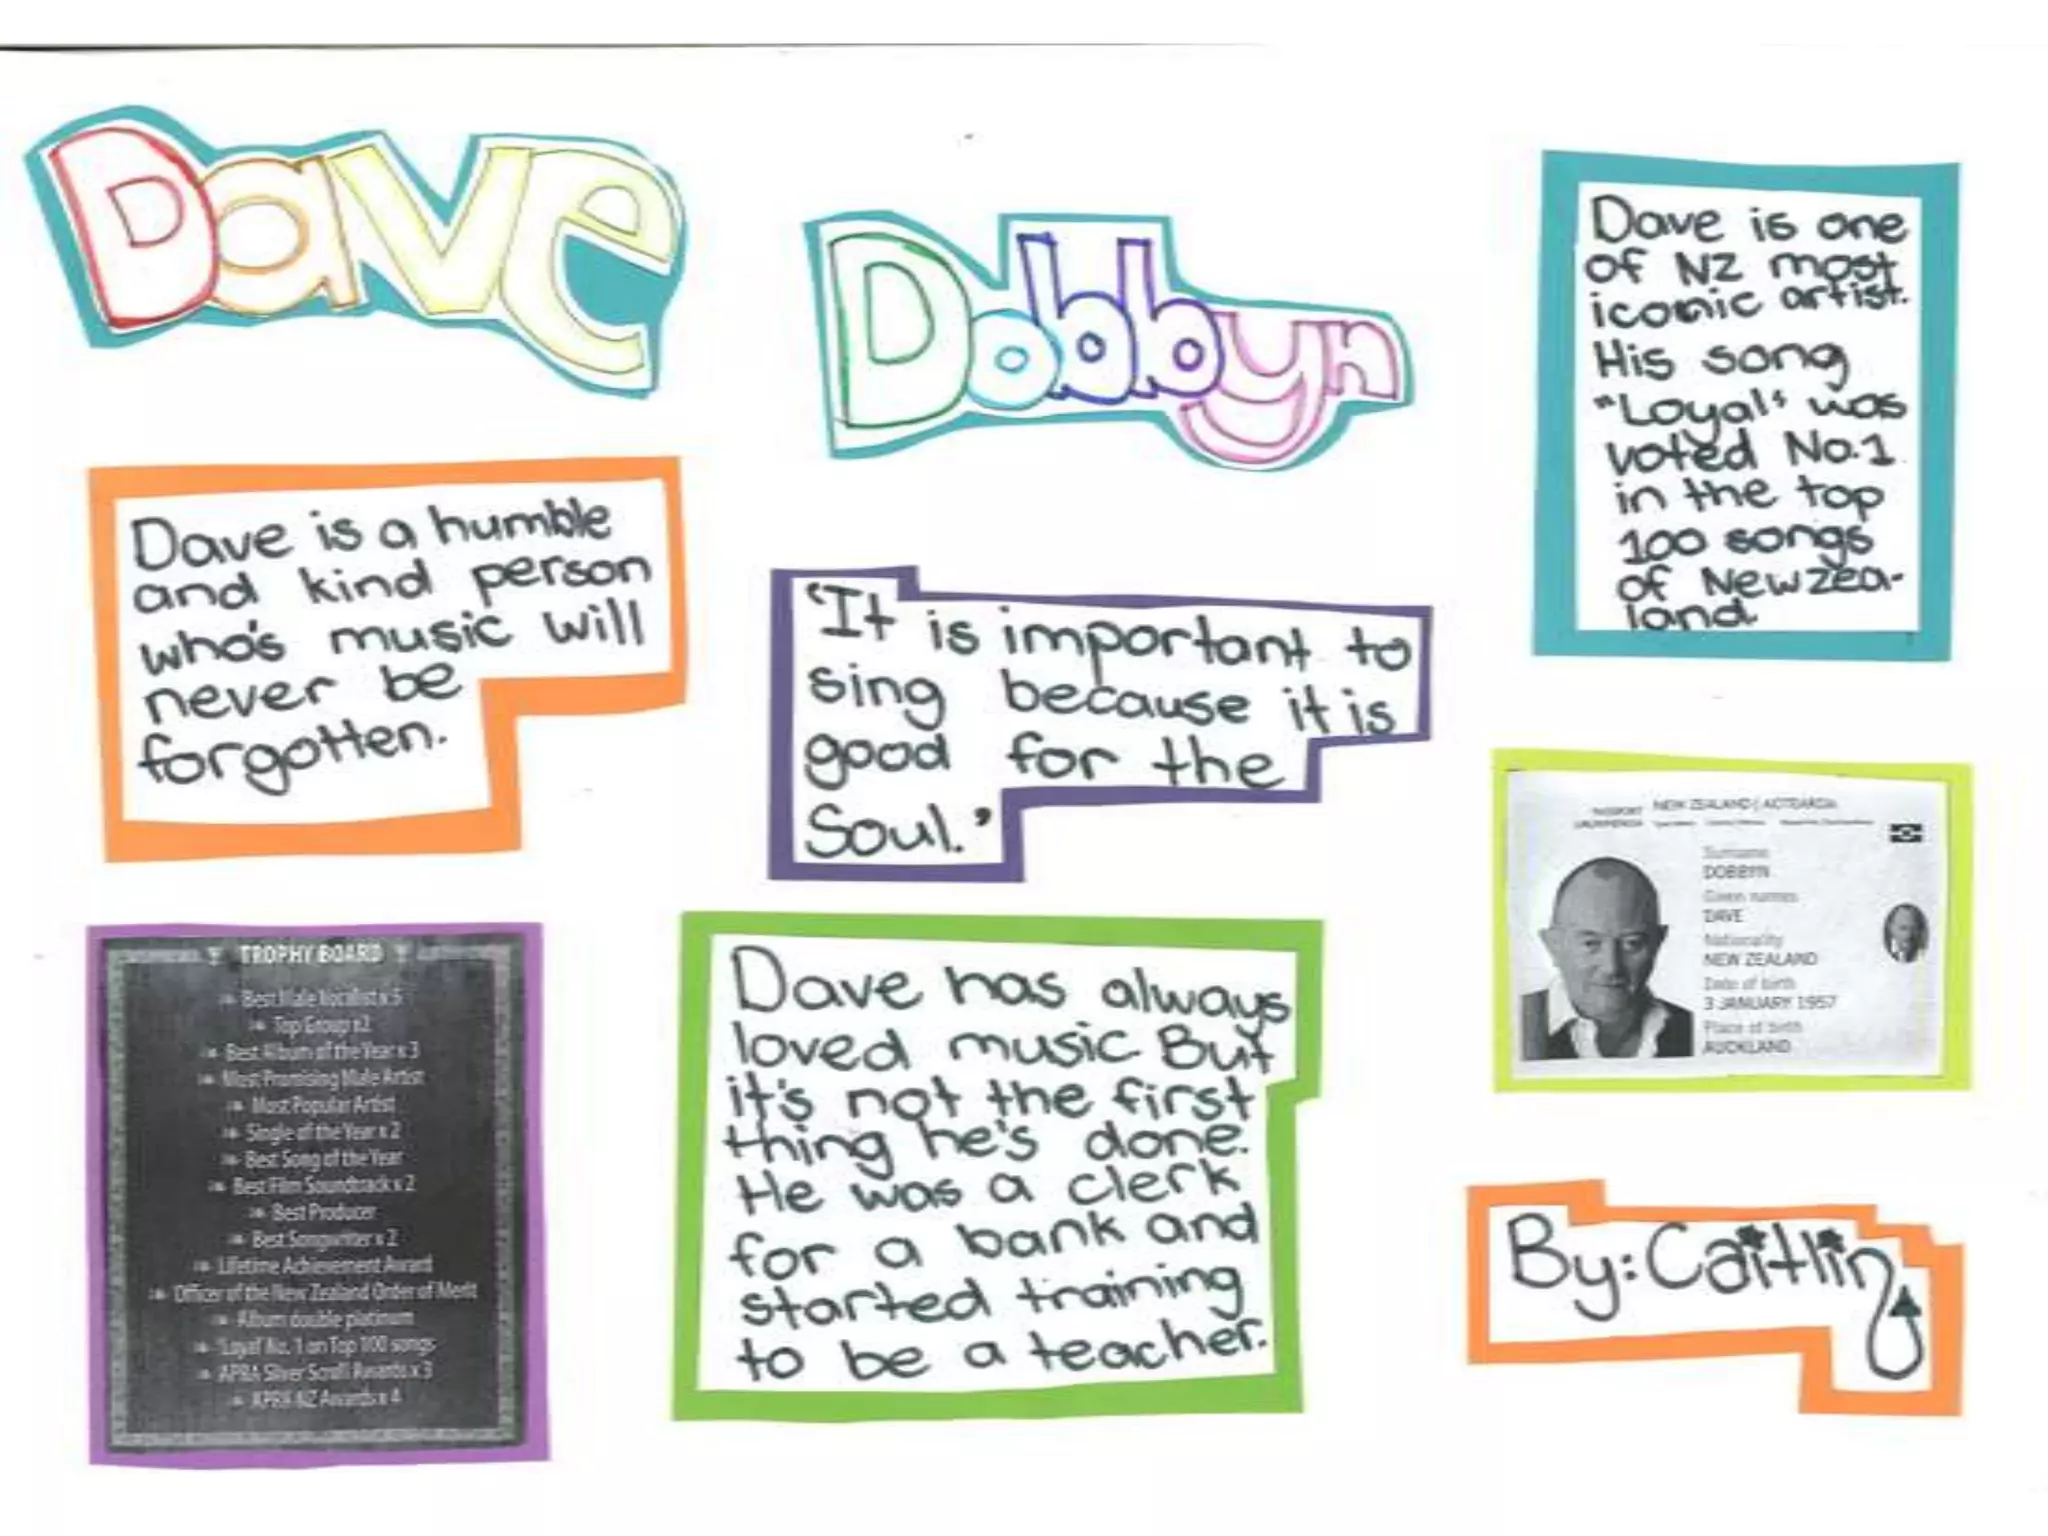 Dave
Dobbyn
Dave is a humble
and kind person
who's music will
never be
forgotten.
'It is important to
sing because it is
good for the
Soul.'
Dave is one
of NZ most
iconic artist.
His song
"Loyal" was
voted No.1
in the top
100 songs
of New Zea-
land.
TROPHY BOARD
Best Male Vocalist x 5
Top Group x2
Best Album of the Year x 3
Most Promising Male Artist
Most Popular Artist
Single of the Year x 2
Best Song of the Year
Best Film Soundtrack x 2
Best Producer
Best Songwriter x 2
Lifetime Achievement Award
Officer of the New Zealand Order of Merit
Album double platinum
'Loyal' No. 1 on Top 100 songs
APRA Silver Scroll Awards x 3
APRA NZ Awards x 4
Dave has always
loved music But
it's not the first
thing he's done.
He was a clerk
for a bank and
started training
to be a teacher.
PASSPORT NEW ZEALAND | AOTEAROA
URUWHENUA
Surname
DOBBYN
Given names
DAVE
Nationality
NEW ZEALAND
Date of birth
3 JANUARY 1957
Place of birth
AUCKLAND
By: Caitlin